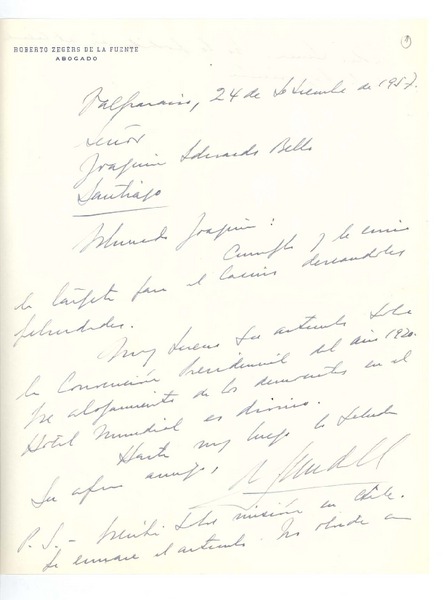 ROBERTO ZEGERS DE LA FUENTE
ABOGADO
Valparaíso, 24 de Setiembre de 1957.
Señor
Joaquín Edwards Bello
Santiago
Joaquín:
Cumplo y le envío
la tarjeta para el Casino deseándoles
felicidades.
Muy bueno su artículo sobre
la Convención Presidencial del año 1920.
alojamiento de los en el
Hotel Mundial es
Hasta muy luego lo saluda
Su afmo amigo,
P. S. - sobre misión en Chile.
Le enviaré el artículo. No olvide